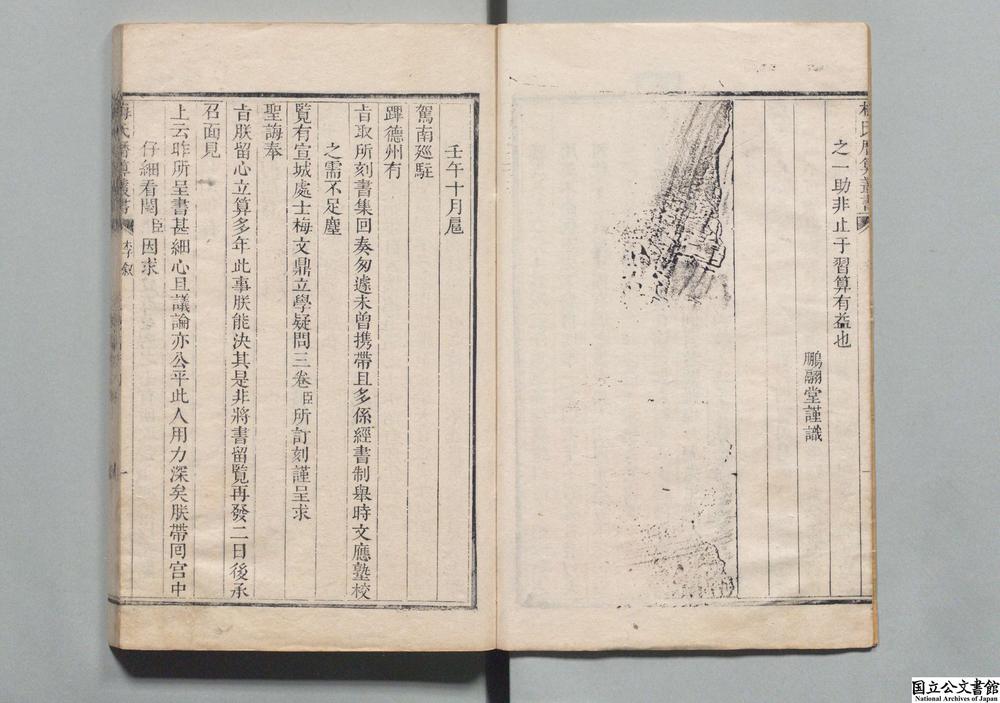 之一助非止于習算有益也
鵬翮堂謹識
壬午十月扈
駕南廵駐
蹕德州有
旨取所刻書集回奏匆遽未曾携帶且多係經書制舉時文應塾校
之需不足塵
覧有宣城處士梅文鼎立學疑問三卷臣所訂刻謹呈求
聖誨奉
旨朕留心立算多年此事朕能決其是非將書留覧再發二日後承
召面見
上云昨所呈書甚細心且議論亦公平此人用力深矣朕帶囘宫中
仔細看閱臣因求
李敘
国立公文書館
National Archives of Japan